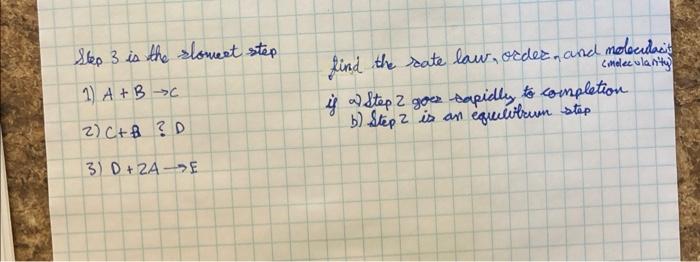 Step 3 is the slowest step
1) A + B → C
2) C + B ? D
3) D + 2A → E
find the rate law, order, and molecularity
(molecularity)
if a) Step 2 goes rapidly to completion
b) Step 2 is an equilibrium step